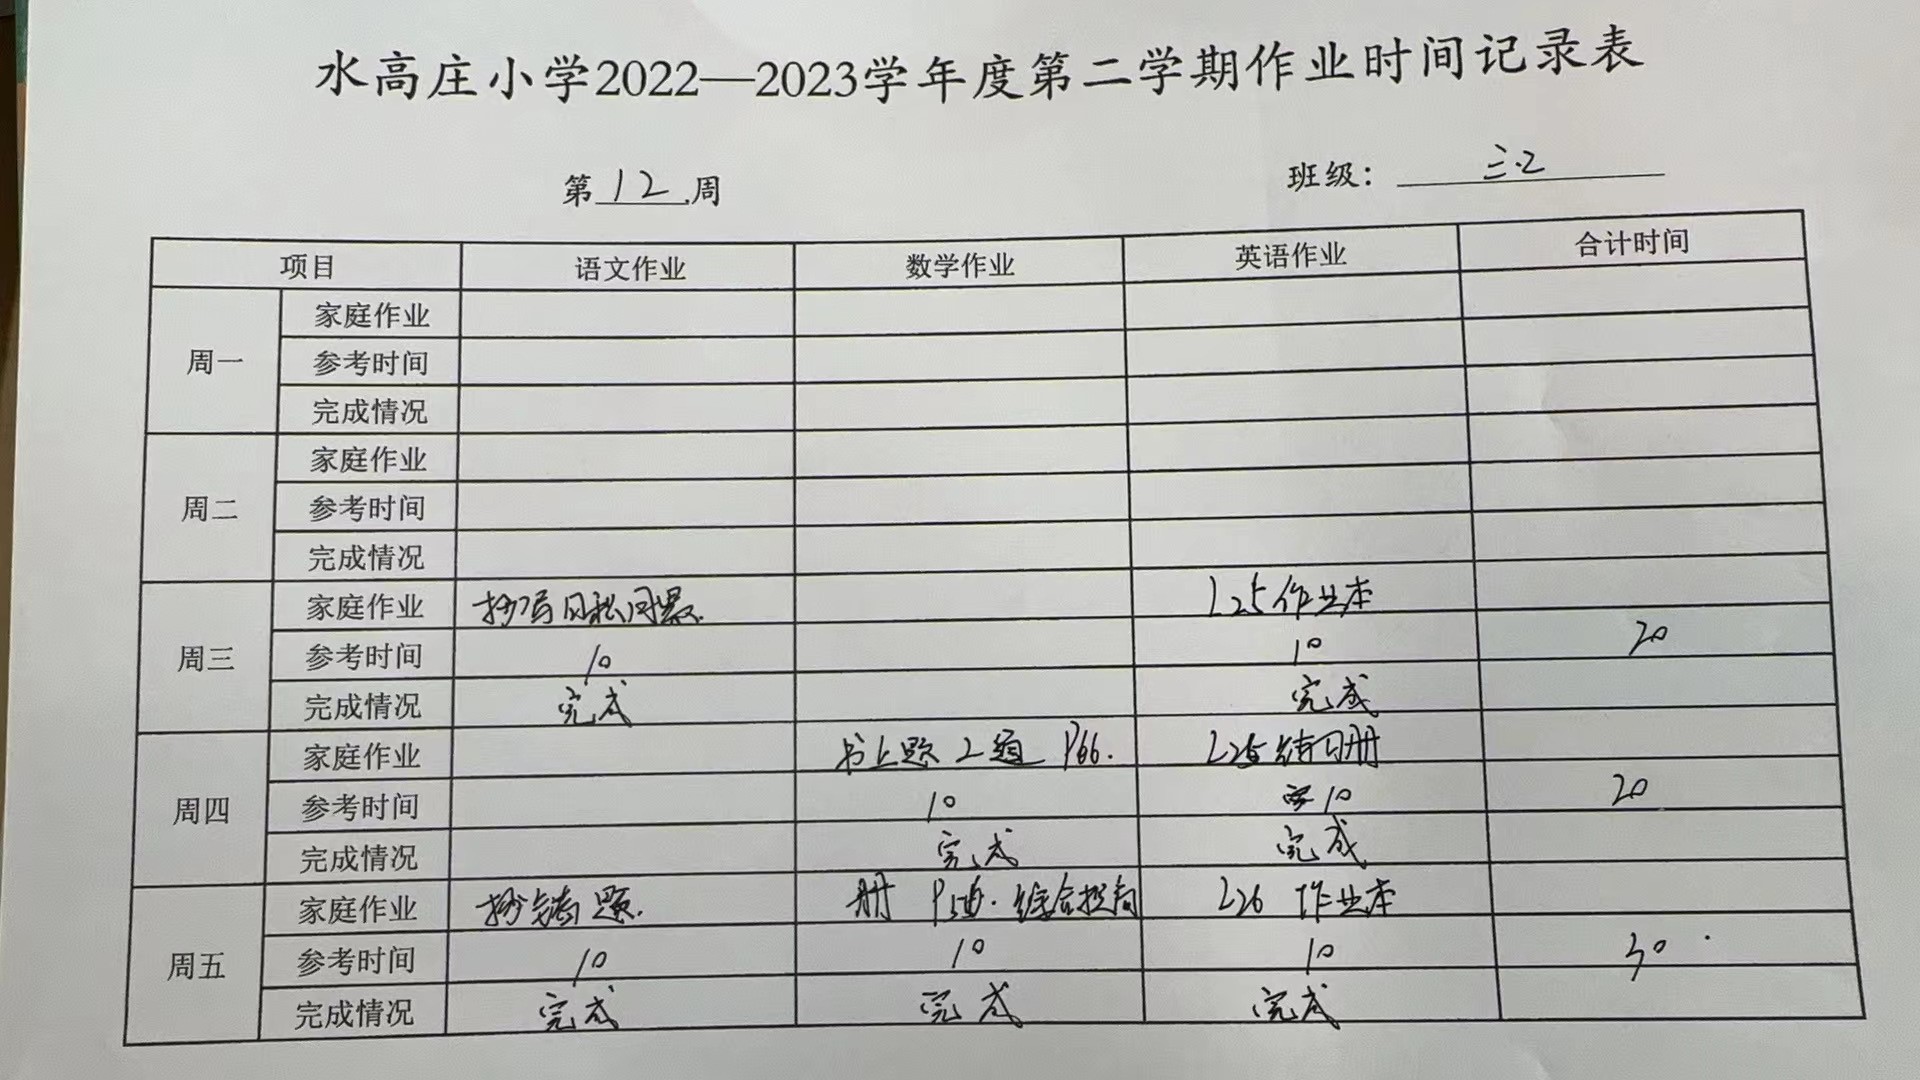 水高庄小学2022—2023学年度第二学期作业时间记录表
第12周 班级：三.2
项目 语文作业 数学作业 英语作业 合计时间
周一
家庭作业
参考时间
完成情况
周二
家庭作业
参考时间
完成情况
周三
家庭作业 抄写日积月累. L25作业本
参考时间 10 10 20
完成情况 完成 完成
周四
家庭作业 书上题2题 P66. L25练习册
参考时间 10 10 20
完成情况 完成 完成
周五
家庭作业 抄 题. 册 综合 L26 作业本
参考时间 10 10 10 30
完成情况 完成 完成 完成